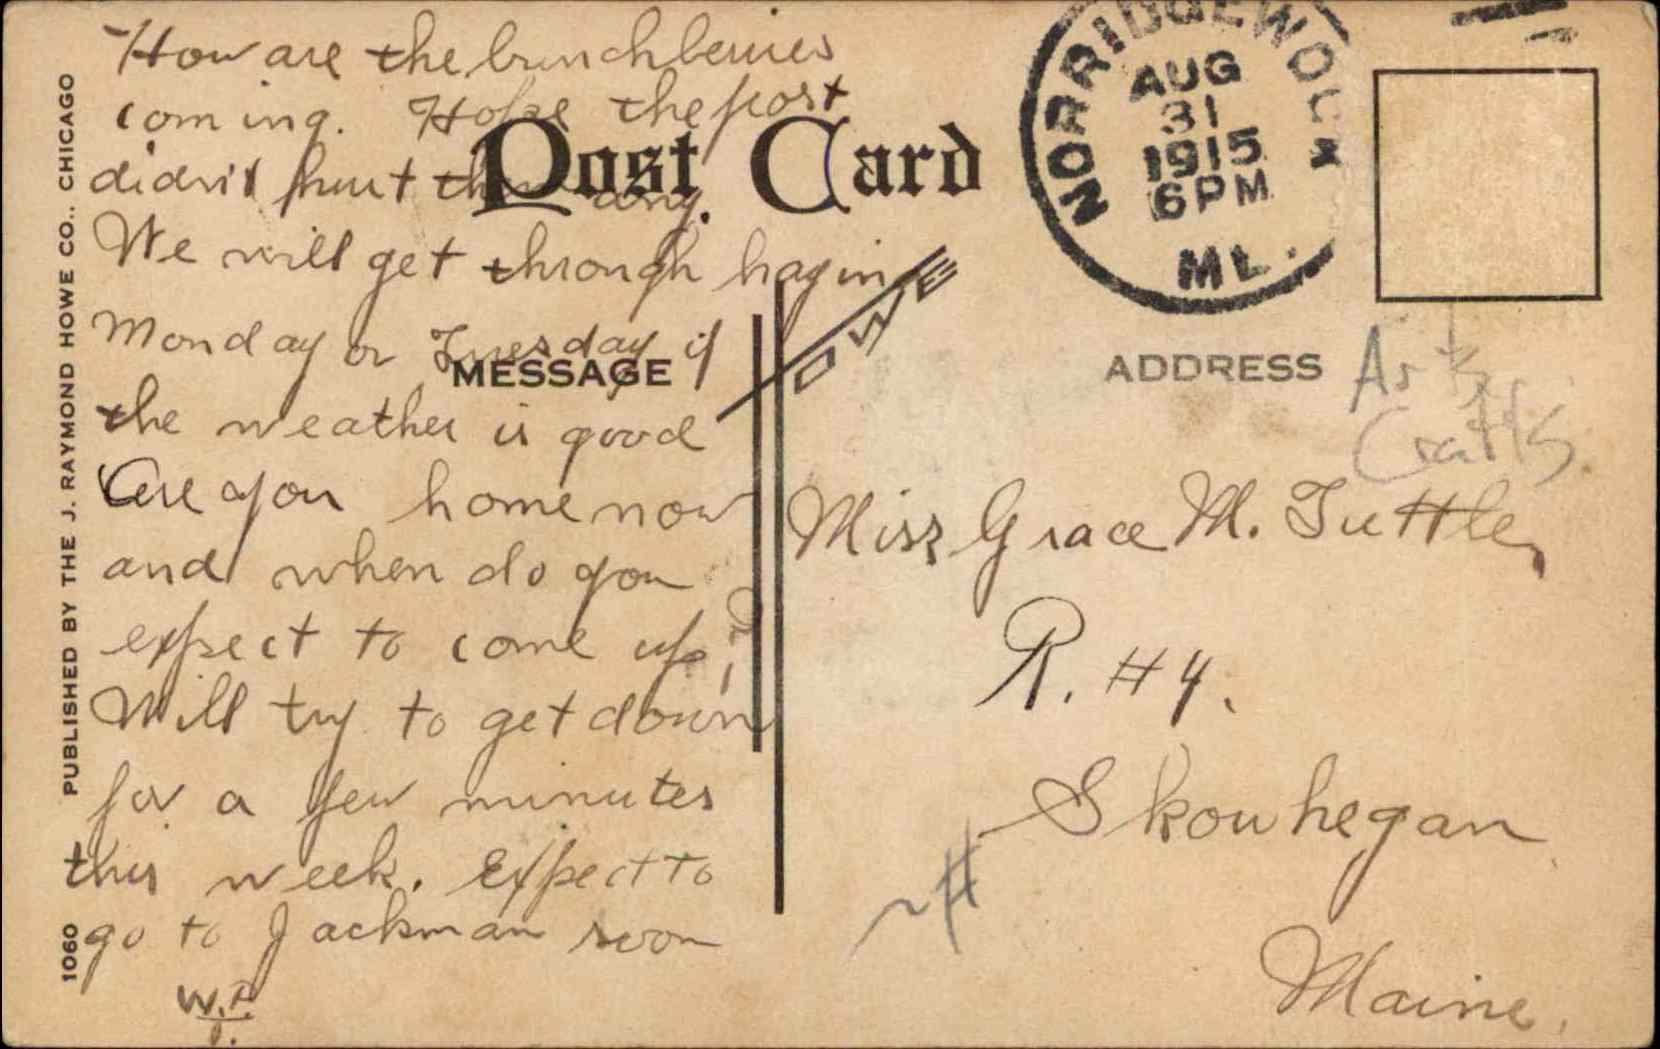 How are the bunchberries
coming. Hope the frost
didn't hurt them any.
We will get through hayin
Monday or Tuesday if
the weather is good
Are you home now
and when do you
expect to come up?
Will try to get down
for a few minutes
this week. Expect to
go to Jackman soon
W.F.
T.
Post Card
MESSAGE
HOWE
ADDRESS
NORRIDGEWOCK
AUG
31
1915
6PM
ME.
Art &
Crafts
Miss Grace M. Tuttle,
R. #4.
Skowhegan
Maine.
PUBLISHED BY THE J. RAYMOND HOWE CO., CHICAGO
1060